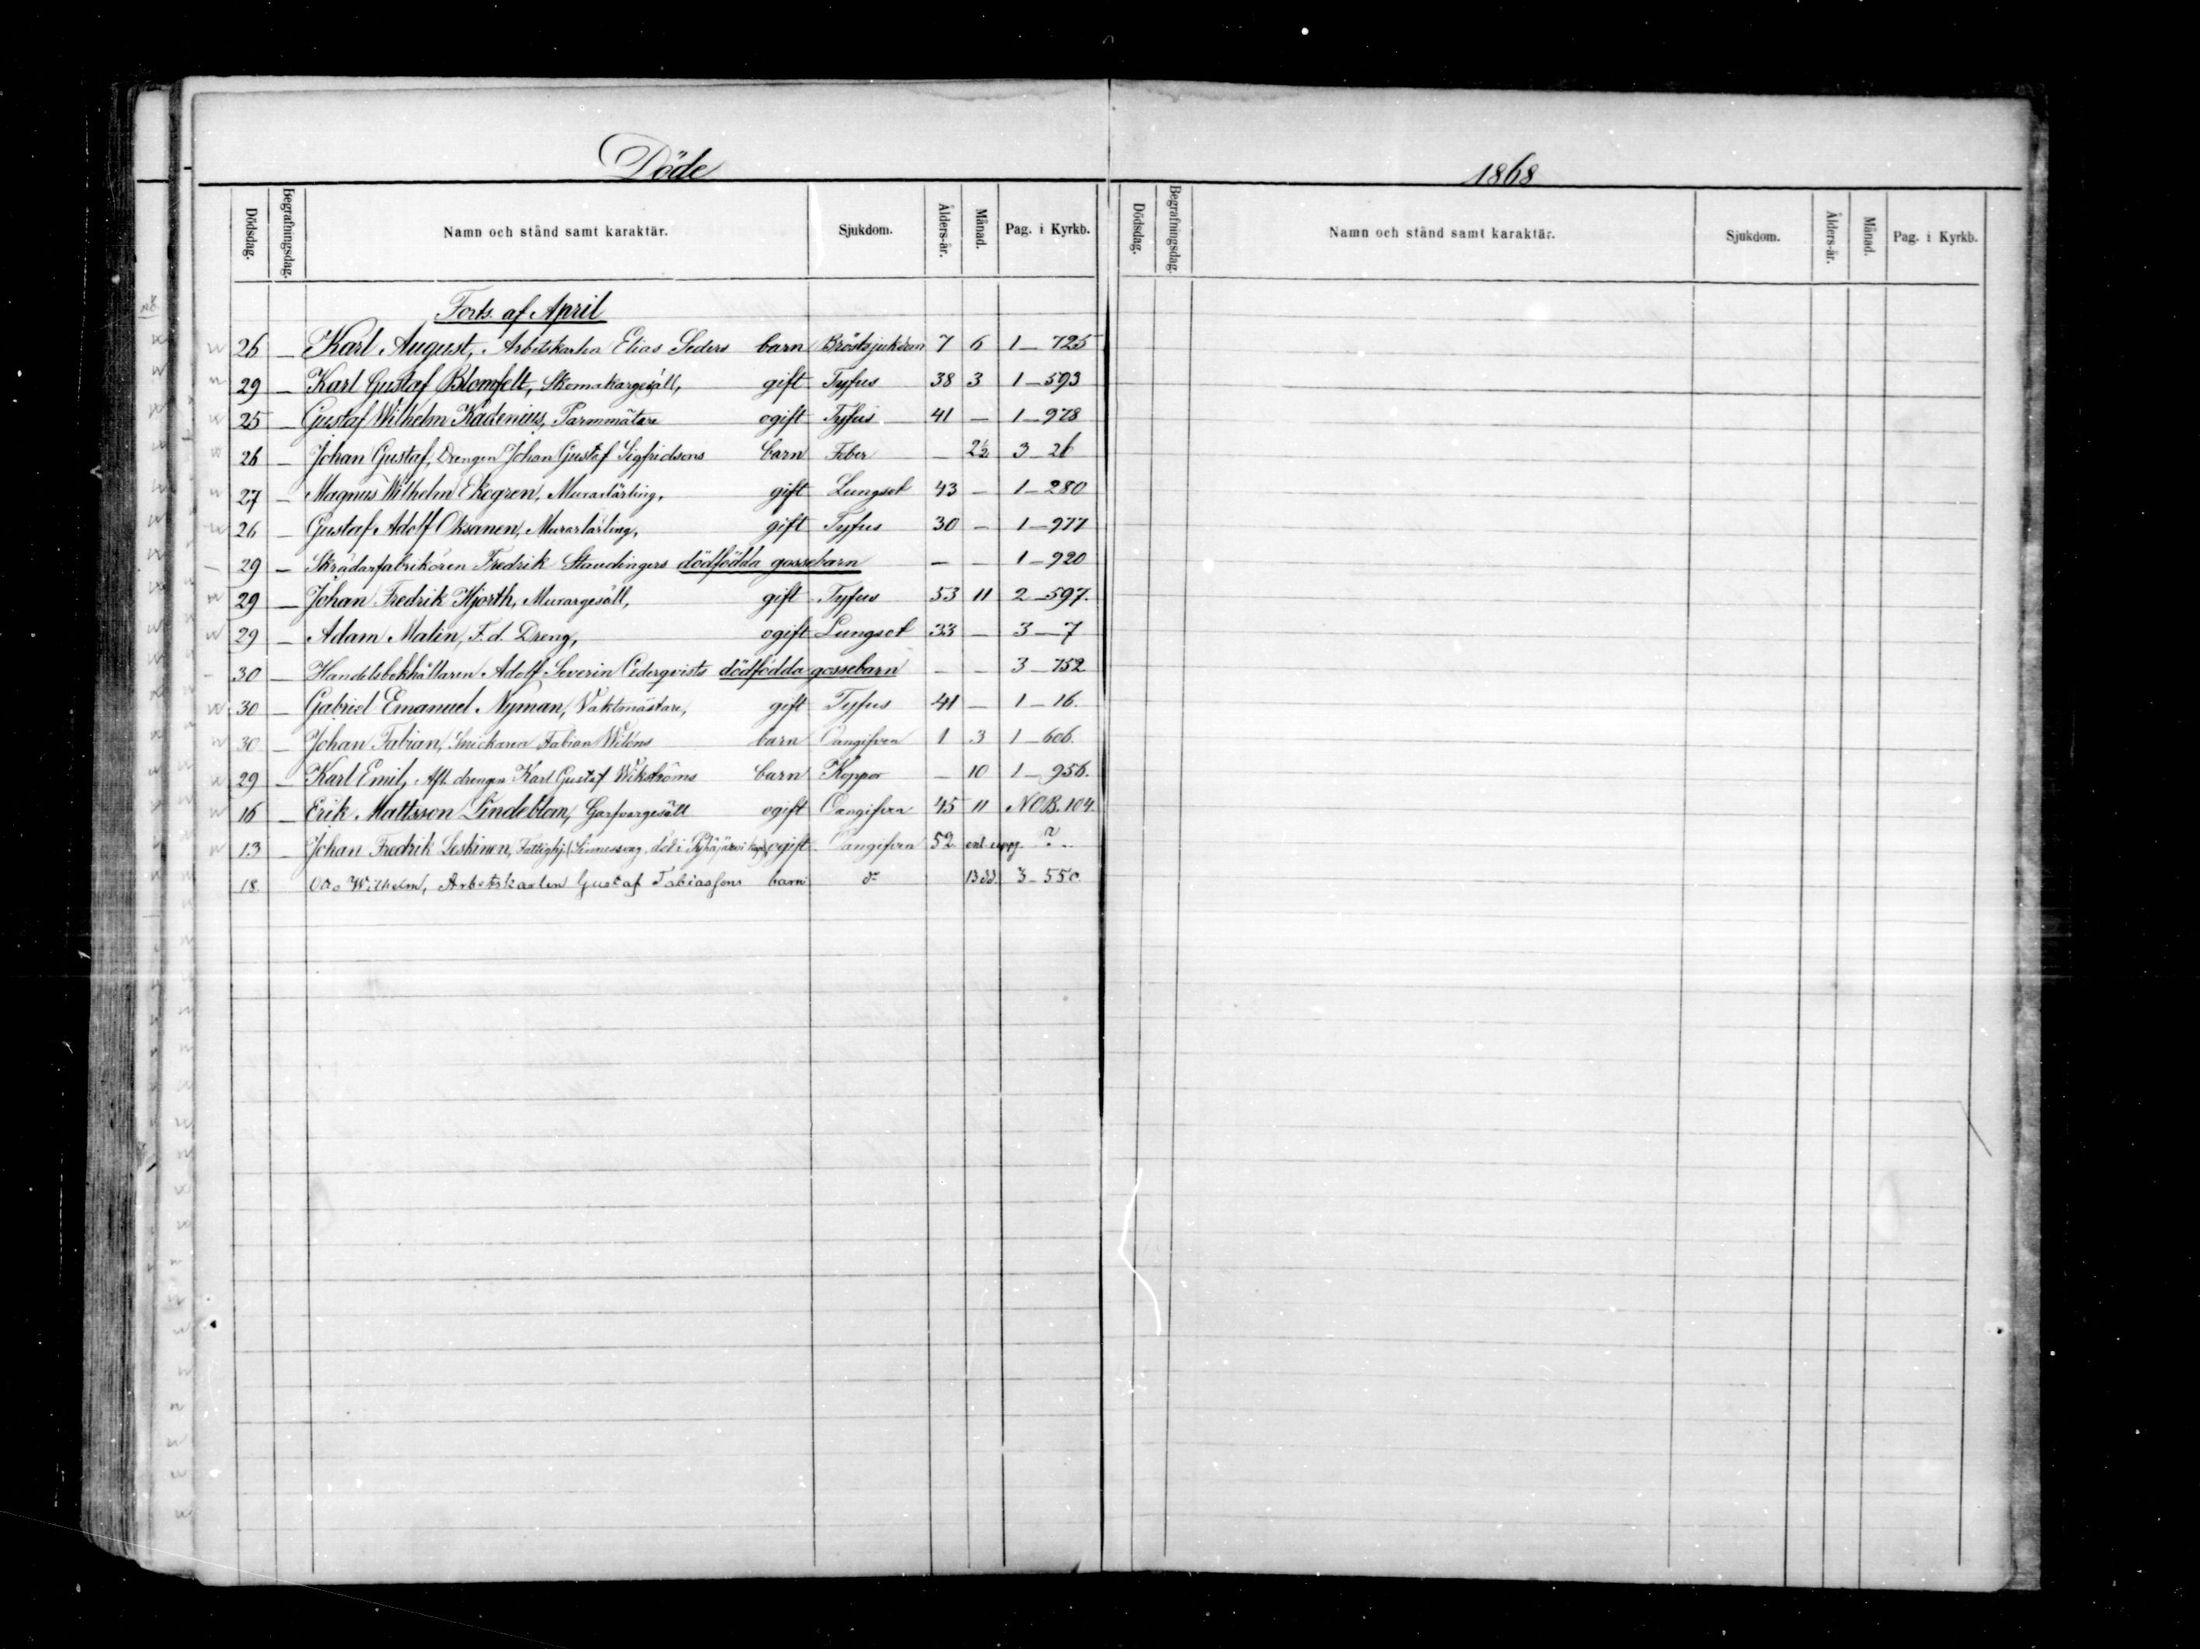 Döde
1868
Dödsdag. Begrafningsdag. Namn och stånd samt karaktär. Sjukdom. Ålders-år. Månad. Pag. i Kyrkb.
Dödsdag. Begrafningsdag. Namn och stånd samt karaktär. Sjukdom. Ålders-år. Månad. Pag. i Kyrkb.
Forts. af April
26 — Karl August, Arbetskarlen Elias Seders barn Bröstsjukdom 7 6 1 — 725
29 — Karl Gustaf Blomfelt, Skomakargesäll, gift Tyfus 38 3 1 — 593
25 — Gustaf Wilhelm Kadenius, Parmmätare ogift Tyfus 41 — 1 — 978
26 — Johan Gustaf, Drengen Johan Gustaf Sigfridsons barn Feber — 2½ 3 — 26
27 — Magnus Wilhelm Ekegren, Murarlärling, gift Lungsot 43 — 1 — 280
26 — Gustaf Adolf Oksanen, Murarlärling, gift Tyfus 30 — 1 — 977
29 — Skrädarfabrikören Fredrik Staudingers dödfödda gossebarn — — 1 — 920
29 — Johan Fredrik Hjorth, Murargesäll, gift Tyfus 53 11 2 — 597.
29 — Adam Malin, F.d. Dreng, ogift Lungsot 33 — 3 — 7
30 — Handelsbokhållaren Adolf Severin Cederqvists dödfödda gossebarn — — 3 — 752
30 — Gabriel Emanuel Nyman, Vaktmästare, gift Tyfus 41 — 1 — 16.
30 — Johan Fabian, Snickaren Fabian Wiléns barn Oangifven 1 3 1 — 606.
29 — Karl Emil, Aft. drengen Karl Gustaf Wikströms barn Koppor — 10 1 — 956.
16 — Erik Mattsson Lindeblom, Garfvargesäll ogift Oangifven 45 11 NOB. 104.
13 Johan Fredrik Leskinen, Fattighj. (Sinnessvag, död i Pyhäjärvi ogift Oangifven 52 enl. uppg. ?
18. Otto Wilhelm, Arbetskarlen Gustaf Tobiassons barn d:o 13 dd. 3 — 550